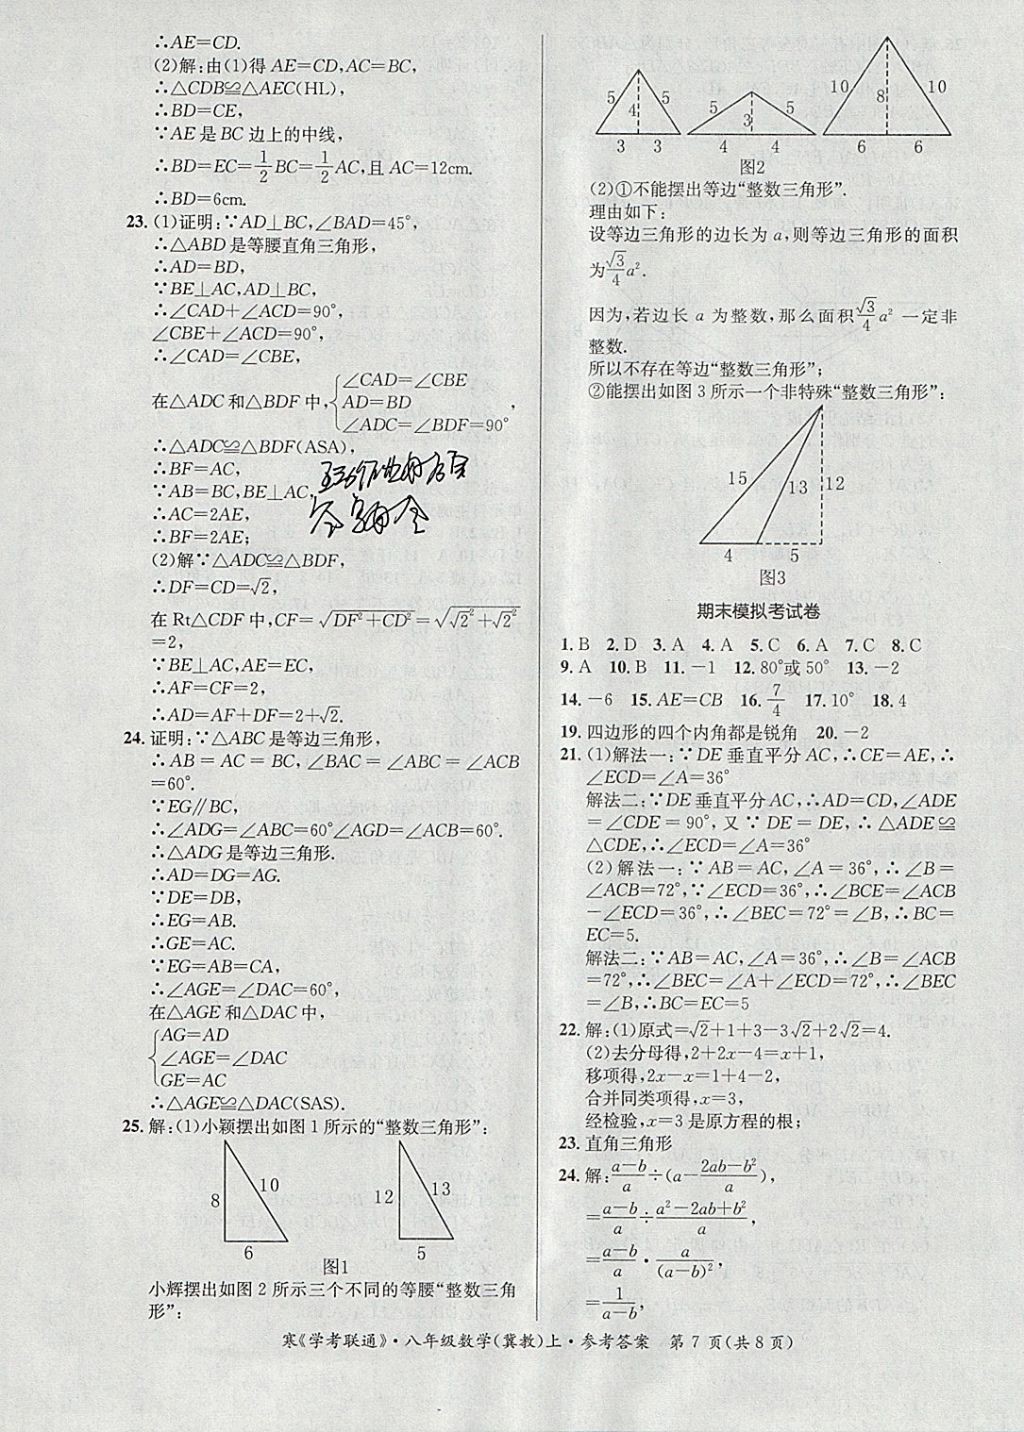 ∴AE=CD.
(2)解:由(1)得 AE=CD,AC=BC,
∴△CDB≌△AEC(HL),
∴BD=CE,
∵AE 是 BC 边上的中线,
∴BD=EC=1/2BC=1/2AC,且 AC=12cm.
∴BD=6cm.
23. (1)证明:∵AD⊥BC,∠BAD=45°,
∴△ABD 是等腰直角三角形,
∴AD=BD,
∵BE⊥AC,AD⊥BC,
∴∠CAD+∠ACD=90°,
∠CBE+∠ACD=90°,
∴∠CAD=∠CBE,
在△ADC 和△BDF 中,{∠CAD=∠CBE
AD=BD
∠ADC=∠BDF=90°,
∴△ADC≌△BDF(ASA),
∴BF=AC,
∵AB=BC,BE⊥AC,
∴AC=2AE,
∴BF=2AE;
(2)解∵△ADC≌△BDF,
∴DF=CD=√2,
在 Rt△CDF 中,CF=√(DF²+CD²)=√(√2²+√2²)
=2,
∵BE⊥AC,AE=EC,
∴AF=CF=2,
∴AD=AF+DF=2+√2.
24. 证明:∵△ABC 是等边三角形,
∴AB=AC=BC,∠BAC=∠ABC=∠ACB
=60°.
∵EG∥BC,
∴∠ADG=∠ABC=60°∠AGD=∠ACB=60°.
∴△ADG 是等边三角形.
∴AD=DG=AG.
∵DE=DB,
∴EG=AB.
∴GE=AC.
∵EG=AB=CA,
∴∠AGE=∠DAC=60°,
在△AGE 和△DAC 中,
{AG=AD
∠AGE=∠DAC
GE=AC
∴△AGE≌△DAC(SAS).
25. 解:(1)小颖摆出如图 1 所示的“整数三角形”:
8 10 6 12 13 5
图1
小辉摆出如图 2 所示三个不同的等腰“整数三角
形”:
5 4 5 3 3 5 3 5 4 4 10 8 10 6 6
图2
(2)①不能摆出等边“整数三角形”.
理由如下:
设等边三角形的边长为 a,则等边三角形的面积
为√3/4a².
因为,若边长 a 为整数,那么面积√3/4a² 一定非
整数.
所以不存在等边“整数三角形”;
②能摆出如图 3 所示一个非特殊“整数三角形”:
15 13 12 4 5
图3
期末模拟考试卷
1. B 2. D 3. A 4. A 5. C 6. A 7. C 8. C
9. A 10. B 11. −1 12. 80°或 50° 13. −2
14. −6 15. AE=CB 16. 7/4 17. 10° 18. 4
19. 四边形的四个内角都是锐角 20. −2
21. (1)解法一:∵DE 垂直平分 AC,∴CE=AE,∴
∠ECD=∠A=36°
解法二:∵DE 垂直平分 AC,∴AD=CD,∠ADE
=∠CDE=90°,又∵DE=DE,∴△ADE≌
△CDE,∴∠ECD=∠A=36°
(2)解法一:∵AB=AC,∠A=36°,∴∠B=
∠ACB=72°,∵∠ECD=36°,∴∠BCE=∠ACB
−∠ECD=36°,∴∠BEC=72°=∠B,∴BC=
EC=5.
解法二:∵AB=AC,∠A=36°,∴∠B=∠ACB
=72°,∴∠BEC=∠A+∠ECD=72°,∴∠BEC
=∠B,∴BC=EC=5
22. 解:(1)原式=√2+1+3−3√2+2√2=4.
(2)去分母得,2+2x−4=x+1,
移项得,2x−x=1+4−2,
合并同类项得,x=3,
经检验,x=3 是原方程的根;
23. 直角三角形
24. 解:(a−b)/a÷(a−(2ab−b²)/a),
=(a−b)/a÷(a²−2ab+b²)/a,
=(a−b)/a·a/(a−b)²,
=1/(a−b),
寒《学考联通》·八年级数学(冀教)上·参考答案 第 7 页(共 8 页)